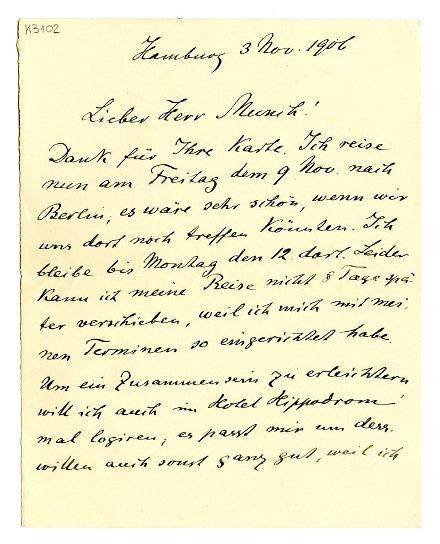 K3102
Hamburg 3 Nov. 1906
Lieber Herr Munch!
Dank für Ihre Karte. Ich reise
nun am Freitag dem 9 Nov. nach
Berlin, es wäre sehr schön, wenn wir
uns dort noch treffen könnten. Ich
bleibe bis Montag den 12. dort. Leider
kann ich meine Reise nicht 8 Tage spä-
ter verschieben, weil ich mich mit mei-
nen Terminen so eingerichtet habe
Um ein Zusammensein zu erleichtern
will ich auch im Hotel Hippodrom
mal logiren, es passt mir um
willen auch sonst ganz gut, weil ich